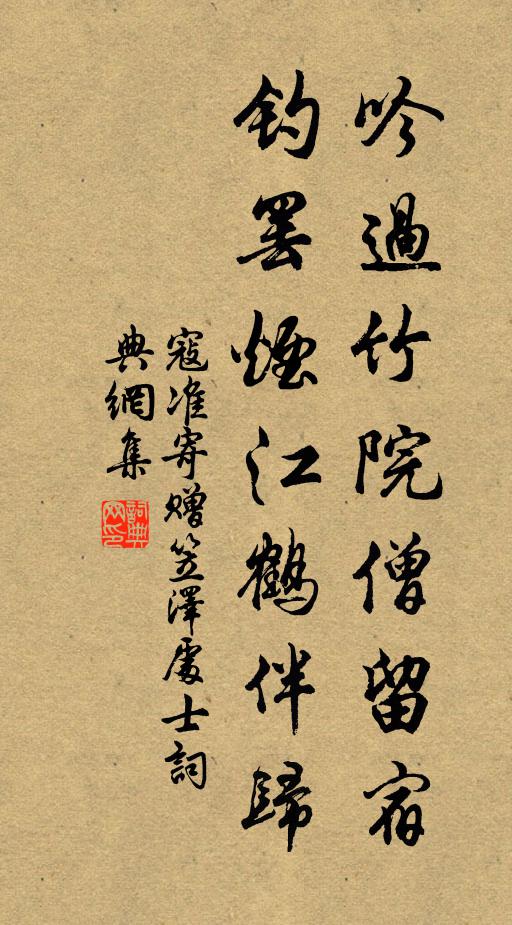 吟過竹院僧留宿
釣罷煙江鶴伴歸
寇准寄贈笠澤處士詞
典網集
詞典網印